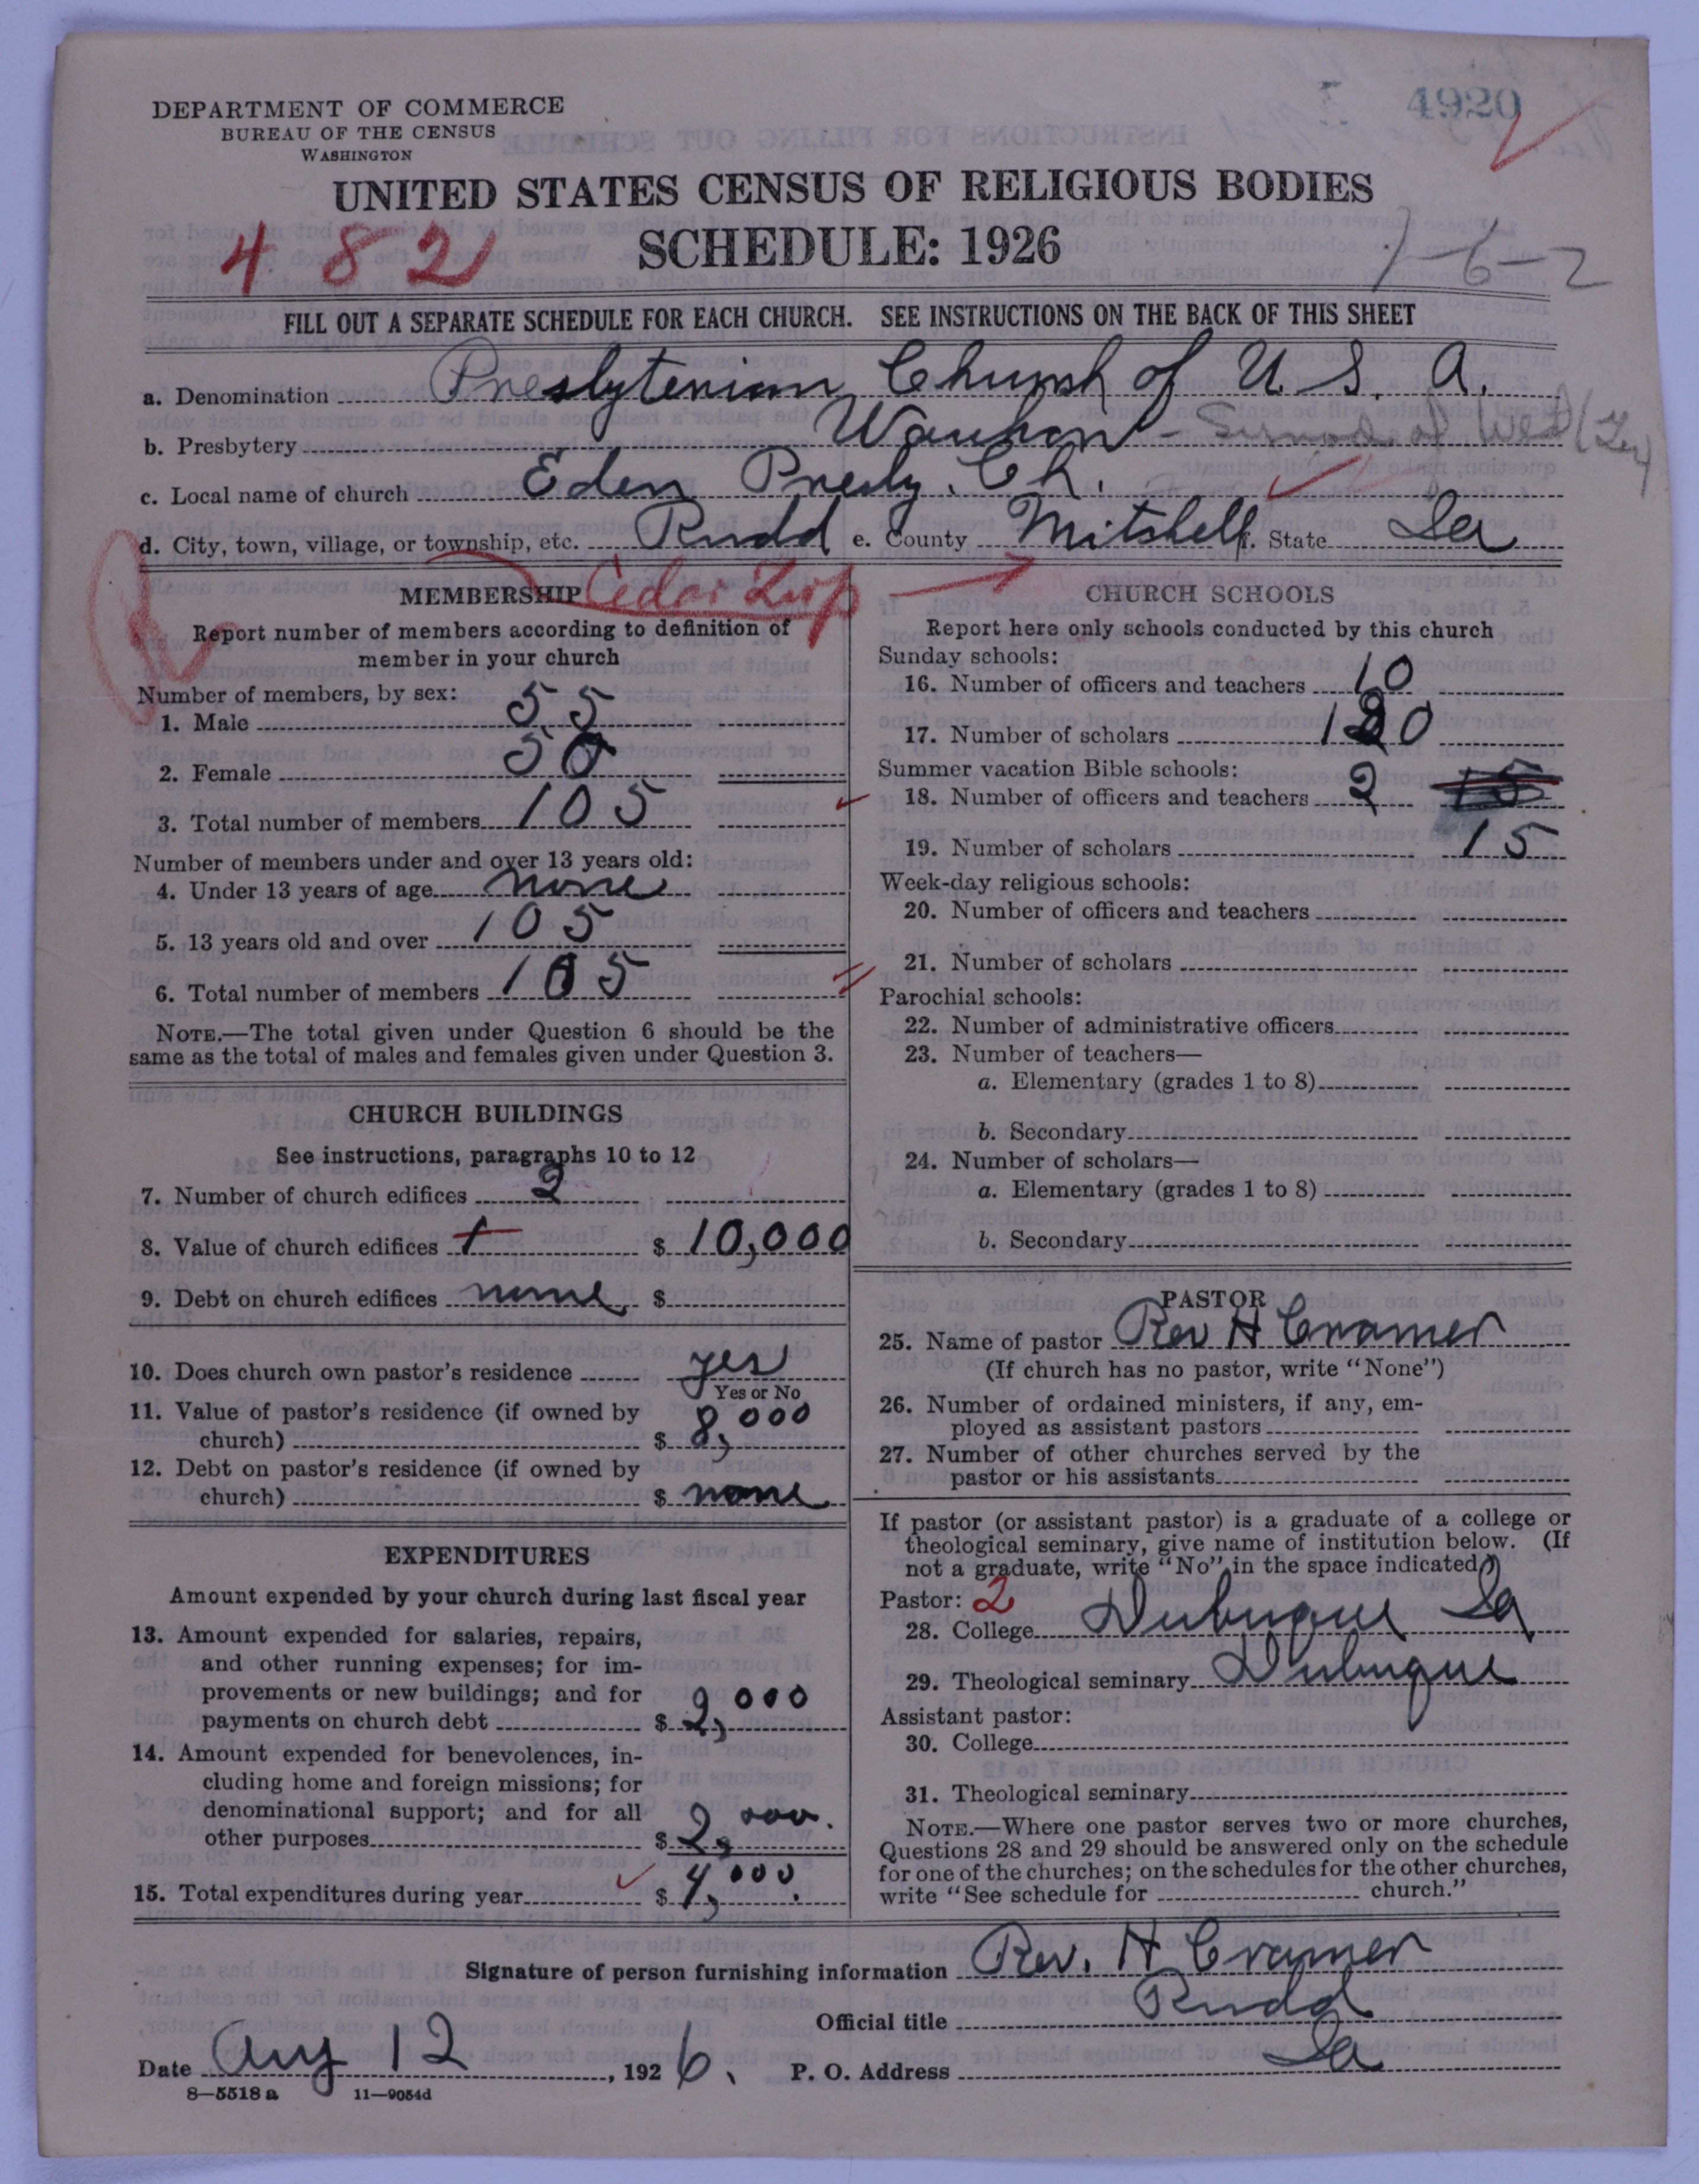 4920
DEPARTMENT OF COMMERCE
BUREAU OF THE CENSUS
WASHINGTON
UNITED STATES CENSUS OF RELIGIOUS BODIES
482
SCHEDULE: 1926
7-6-2
FILL OUT A SEPARATE SCHEDULE FOR EACH CHURCH. SEE INSTRUCTIONS ON THE BACK OF THIS SHEET
a. Denomination Presbyterian Church of U. S. A.
b. Presbytery Waukon - Synod of West (Ger)
c. Local name of church Eden Presby. Ch.
d. City, town, village, or township, etc. Rudd e. County Mitchell f. State Ia
Cedar Twp
MEMBERSHIP
Report number of members according to definition of
member in your church
Number of members, by sex:
1. Male 55
2. Female 50
3. Total number of members 105
Number of members under and over 13 years old:
4. Under 13 years of age none
5. 13 years old and over 105
6. Total number of members 105
NOTE.—The total given under Question 6 should be the
same as the total of males and females given under Question 3.
CHURCH BUILDINGS
See instructions, paragraphs 10 to 12
7. Number of church edifices 2
8. Value of church edifices $ 10,000
9. Debt on church edifices none $
10. Does church own pastor's residence yes
Yes or No
11. Value of pastor's residence (if owned by
church) $ 8,000
12. Debt on pastor's residence (if owned by
church) $ none
EXPENDITURES
Amount expended by your church during last fiscal year
13. Amount expended for salaries, repairs,
and other running expenses; for im-
provements or new buildings; and for
payments on church debt $ 2,000
14. Amount expended for benevolences, in-
cluding home and foreign missions; for
denominational support; and for all
other purposes $ 2,000.
15. Total expenditures during year $ 4,000.
CHURCH SCHOOLS
Report here only schools conducted by this church
Sunday schools:
16. Number of officers and teachers 10
17. Number of scholars 120
Summer vacation Bible schools:
18. Number of officers and teachers 2 15
19. Number of scholars 15
Week-day religious schools:
20. Number of officers and teachers
21. Number of scholars
Parochial schools:
22. Number of administrative officers
23. Number of teachers—
a. Elementary (grades 1 to 8)
b. Secondary
24. Number of scholars—
a. Elementary (grades 1 to 8)
b. Secondary
PASTOR
25. Name of pastor Rev H Cramer
(If church has no pastor, write "None")
26. Number of ordained ministers, if any, em-
ployed as assistant pastors
27. Number of other churches served by the
pastor or his assistants
If pastor (or assistant pastor) is a graduate of a college or
theological seminary, give name of institution below. (If
not a graduate, write "No" in the space indicated)
Pastor: 2
28. College Dubuque Ia
29. Theological seminary Dubuque
Assistant pastor:
30. College
31. Theological seminary
NOTE.—Where one pastor serves two or more churches,
Questions 28 and 29 should be answered only on the schedule
for one of the churches; on the schedules for the other churches,
write "See schedule for church."
Signature of person furnishing information Rev. H Cramer
Official title Rudd
Date Aug 12, 1926. P. O. Address Ia
8—5518 a 11—9054d